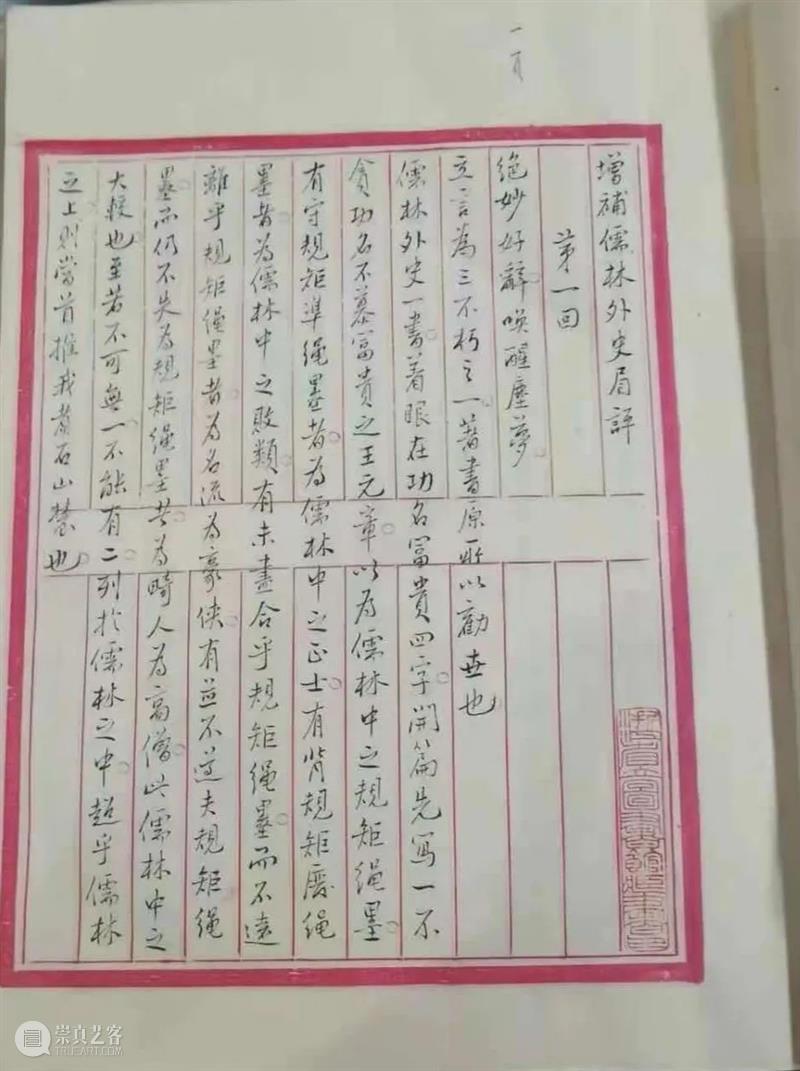 增補儒林外史眉評
第一回
絕妙好辭喚醒塵夢
立言為三不朽之一著書原所以勸世也
儒林外史一書着眼在功名富貴四字開篇先寫一不
貪功名不慕富貴之王元章以為儒林中之規矩繩墨
有守規矩準繩墨者為儒林中之正士有背規矩廢繩
墨者為儒林中之敗類有未盡合乎規矩繩墨而不遠
離乎規矩繩墨者為名流為豪俠有並不遵夫規矩繩
墨而仍不失為規矩繩墨者為畸人為高僧此儒林中之
大較也至若不可無一不能有二列於儒林之中超乎儒林
之上則當首推我石山也
崇真艺客
TRUEART.COM